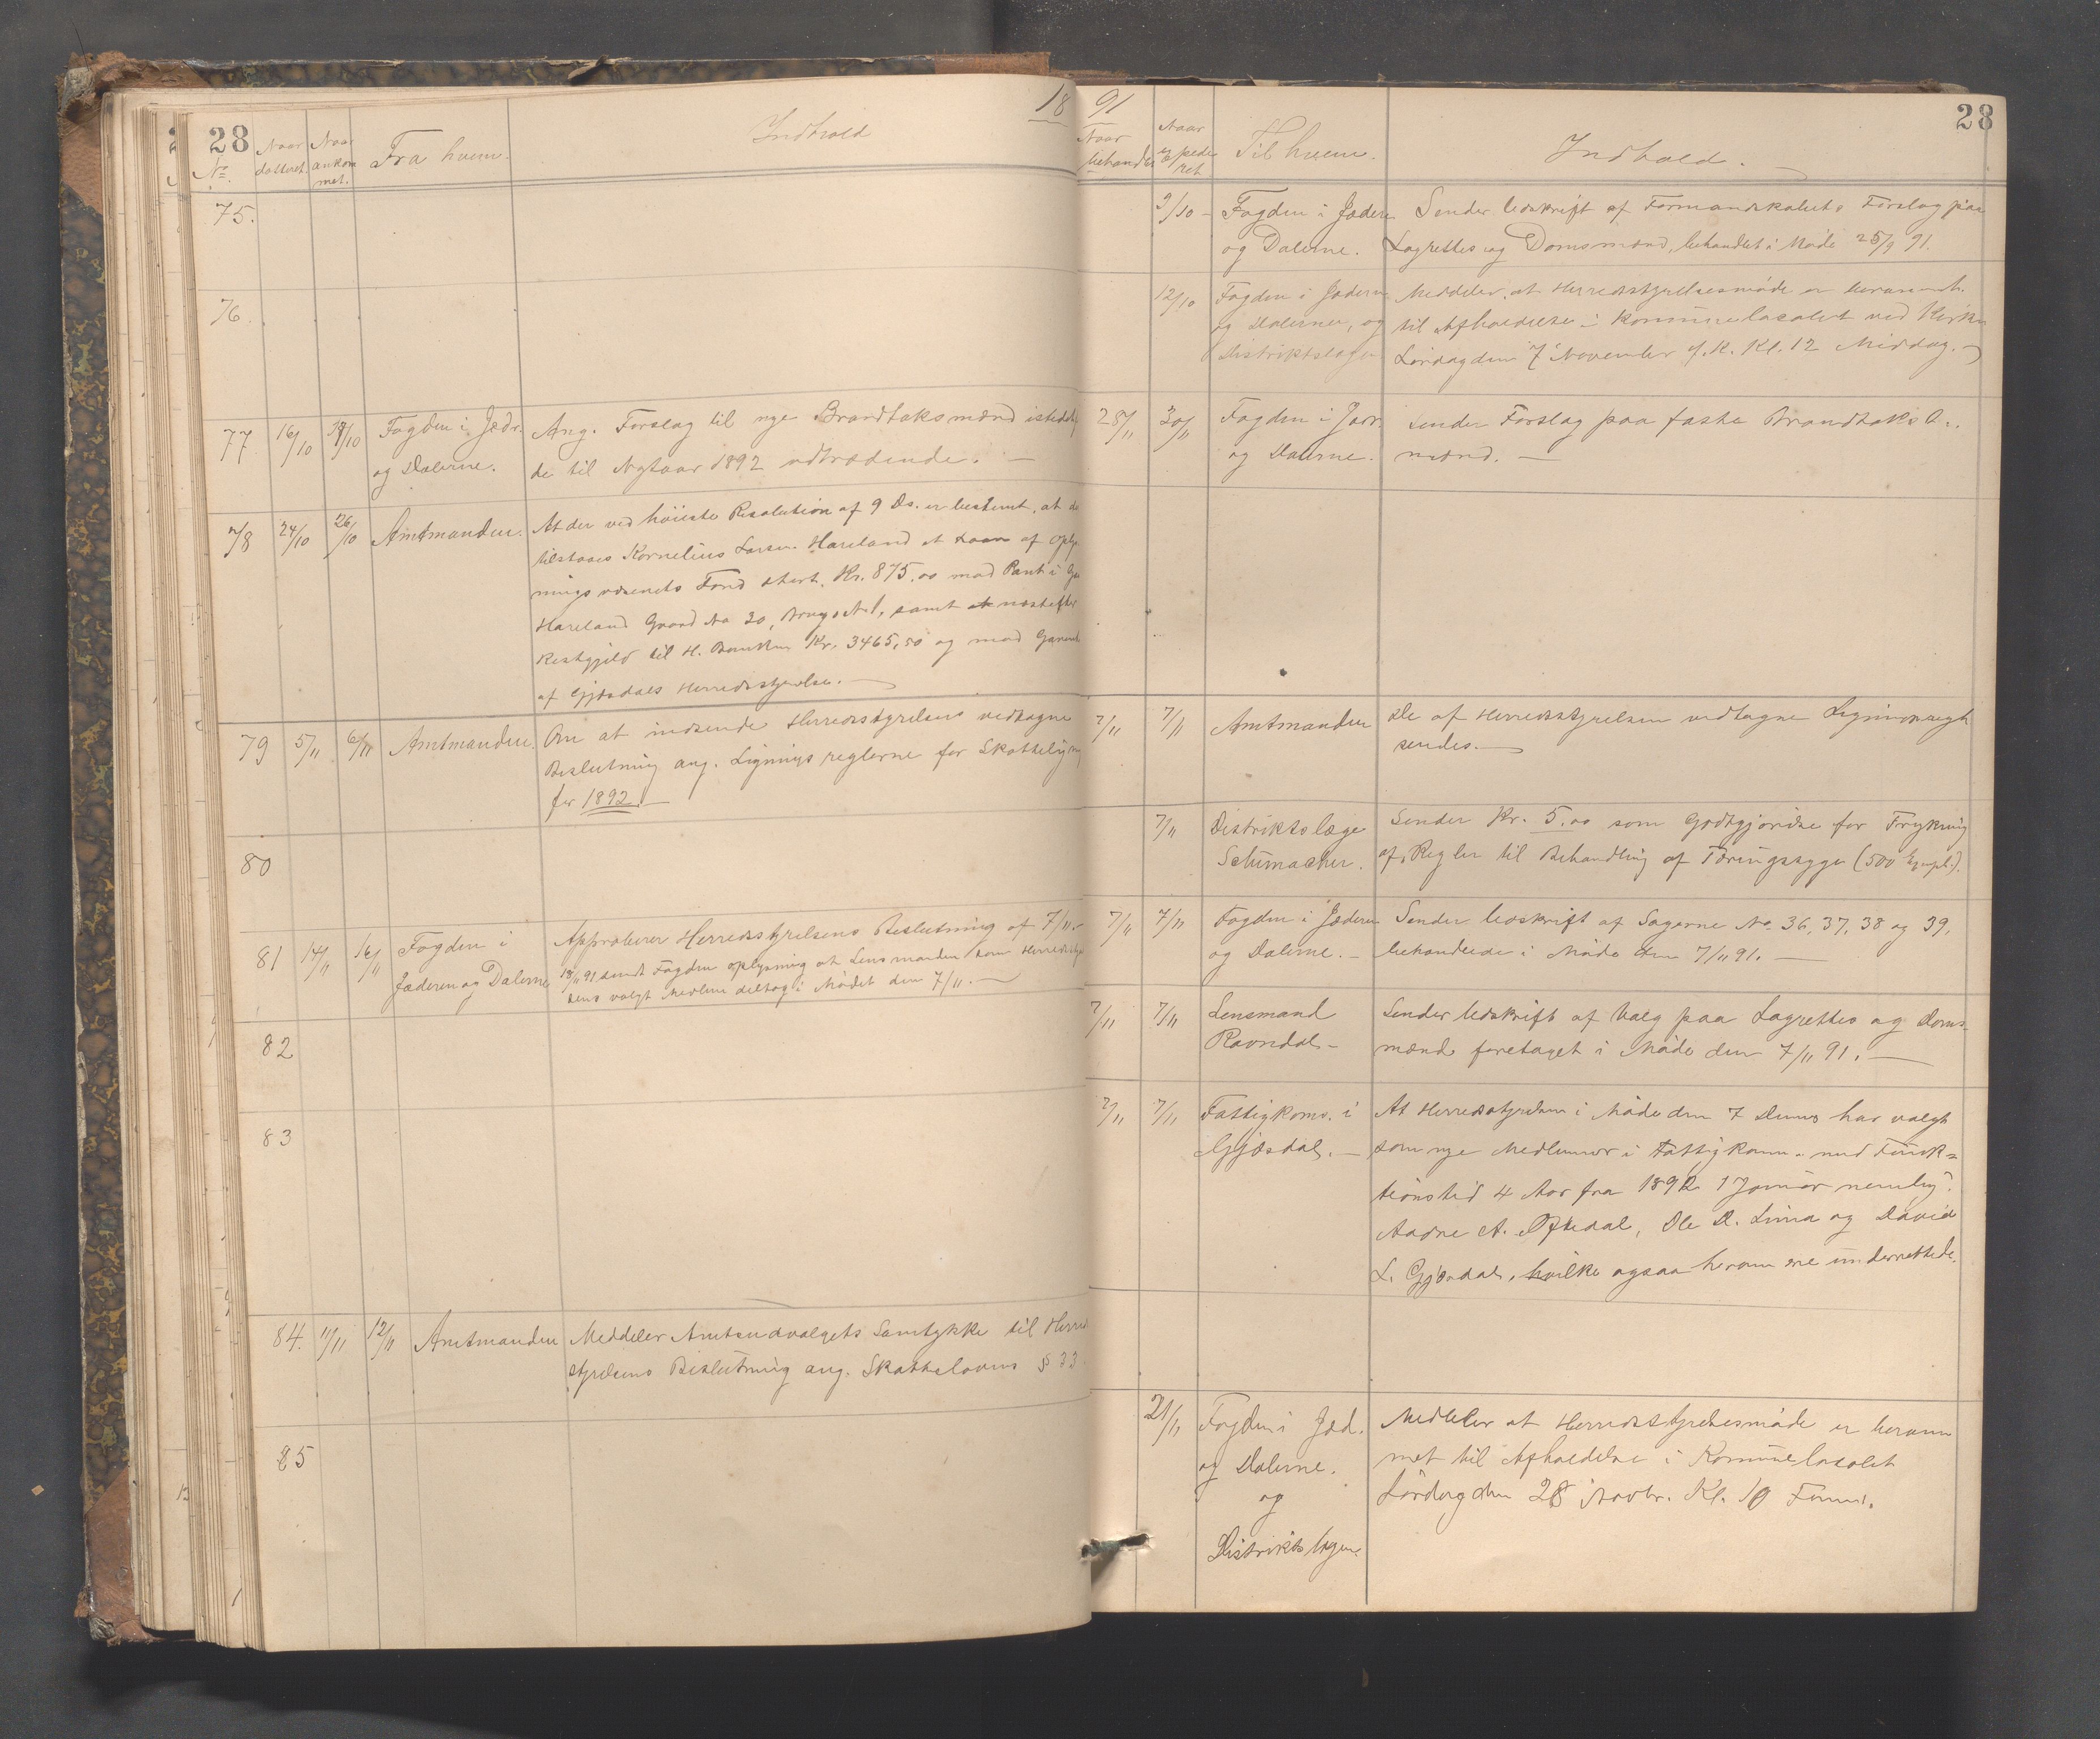 28
1891
28
No. Naar datteret. Naar ankommet. Fra hvem. Indhold
Naar behandlet Naar expederet Til hvem. Indhold.
75.
76.
77 16/10 19/10 Fogden i Jædr. Ang. Forslag til nye Brandtaksmænd istedetfor
og Dalerne. de til Nytaar 1892 udtrædende.
78 24/10 26/10 Amtmanden. At der ved höieste Resolution af 9 Ds. er bestemt, at der
tilstaaes Kornelius Larsen Hareland et Laan af Oplys
ningsvæsenets Fond stort Kr. 875.00 mod Pant i
Hareland Gaard No 30, Brugs No 1, samt næstefter
Restgjeld til H. Banken Kr. 3465,50 og mod Garanti
af Gjæsdals Herredsstyrelse.
79 5/11 6/11 Amtmanden. Om at indsende Herredsstyrelsens vedtagne
Beslutning ang. Ligningsreglerne for Skatteligning
for 1892.
80
81 14/11 16/11 Fogden i Approberer Herredsstyrelsens Beslutning af 7/11.
Jæderen og Dalerne 18/11 91 sendt Fogden oplysning at Lensmanden som Herredssty
rets valgt Medlem deltog i Mödet den 7/11.
82
83
84. 11/11 12/11 Amtmanden Meddeler Amtsudvalgets Samtykke til Herreds
styrelsens Beslutning ang. Skattelovens § 33
85
9/10 Fogden i Jæderen Sender Udskrift af Formandskabets Forslag paa
og Dalerne. Lagrettes og Domsmænd, behandlet i Möde 25/9 91.
12/10 Fogden i Jæderen Meddeler, at Herredsstyrelsesmöde er berammet
og Dalerne, og til Afholdelse i Kommunelocalet ved Kirken
Distriktslægen Lördag den 7 November d. K. Kl. 12 Middag.
28/11 30/11 Fogden i Jædr. Sender Forslag paa faste Brandtaks
og Dalerne. mænd.
7/11 7/11 Amtmanden De af Herredsstyrelsen vedtagne Ligningsregl
sendes.
7/11 Distriktslæge Sender Kr. 5.00 som Godtgjörelse for Trykning
Schumacher. af Regler til Behandling af Tæringssyge (500 Expl.).
7/11 7/11 Fogden i Jæderen Sender Udskrift af Sagerne No. 36, 37, 38 og 39,
og Dalerne. behandlede i Möde den 7/11 91.
7/11 7/11 Lensmand Sender Udskrift af Valg paa Lagrettes og Doms-
Ravndal mænd foretaget i Möde den 7/11 91.
7/11 7/11 Fattigkoms. i At Herredsstyrelsen i Möde den 7 Dennes har valgt
Gjæsdal. som nye Medlemmer i Fattigkomm. med Funk-
tionstid 4 Aar fra 1892 1 Januar nemlig:
Aadne A. Oftedal, Ole D. Lima og David
L. Gjæsdal, hvilke ogsaa herom ere underrettede.
21/11 Fogden i Jæd. Meddeler at Herredsstyrelsesmöde er beram
og Dalerne. met til Afholdelse i Kommunelocalet
og Lördag den 28 Novbr. Kl. 10 Form.
Distriktslægen.